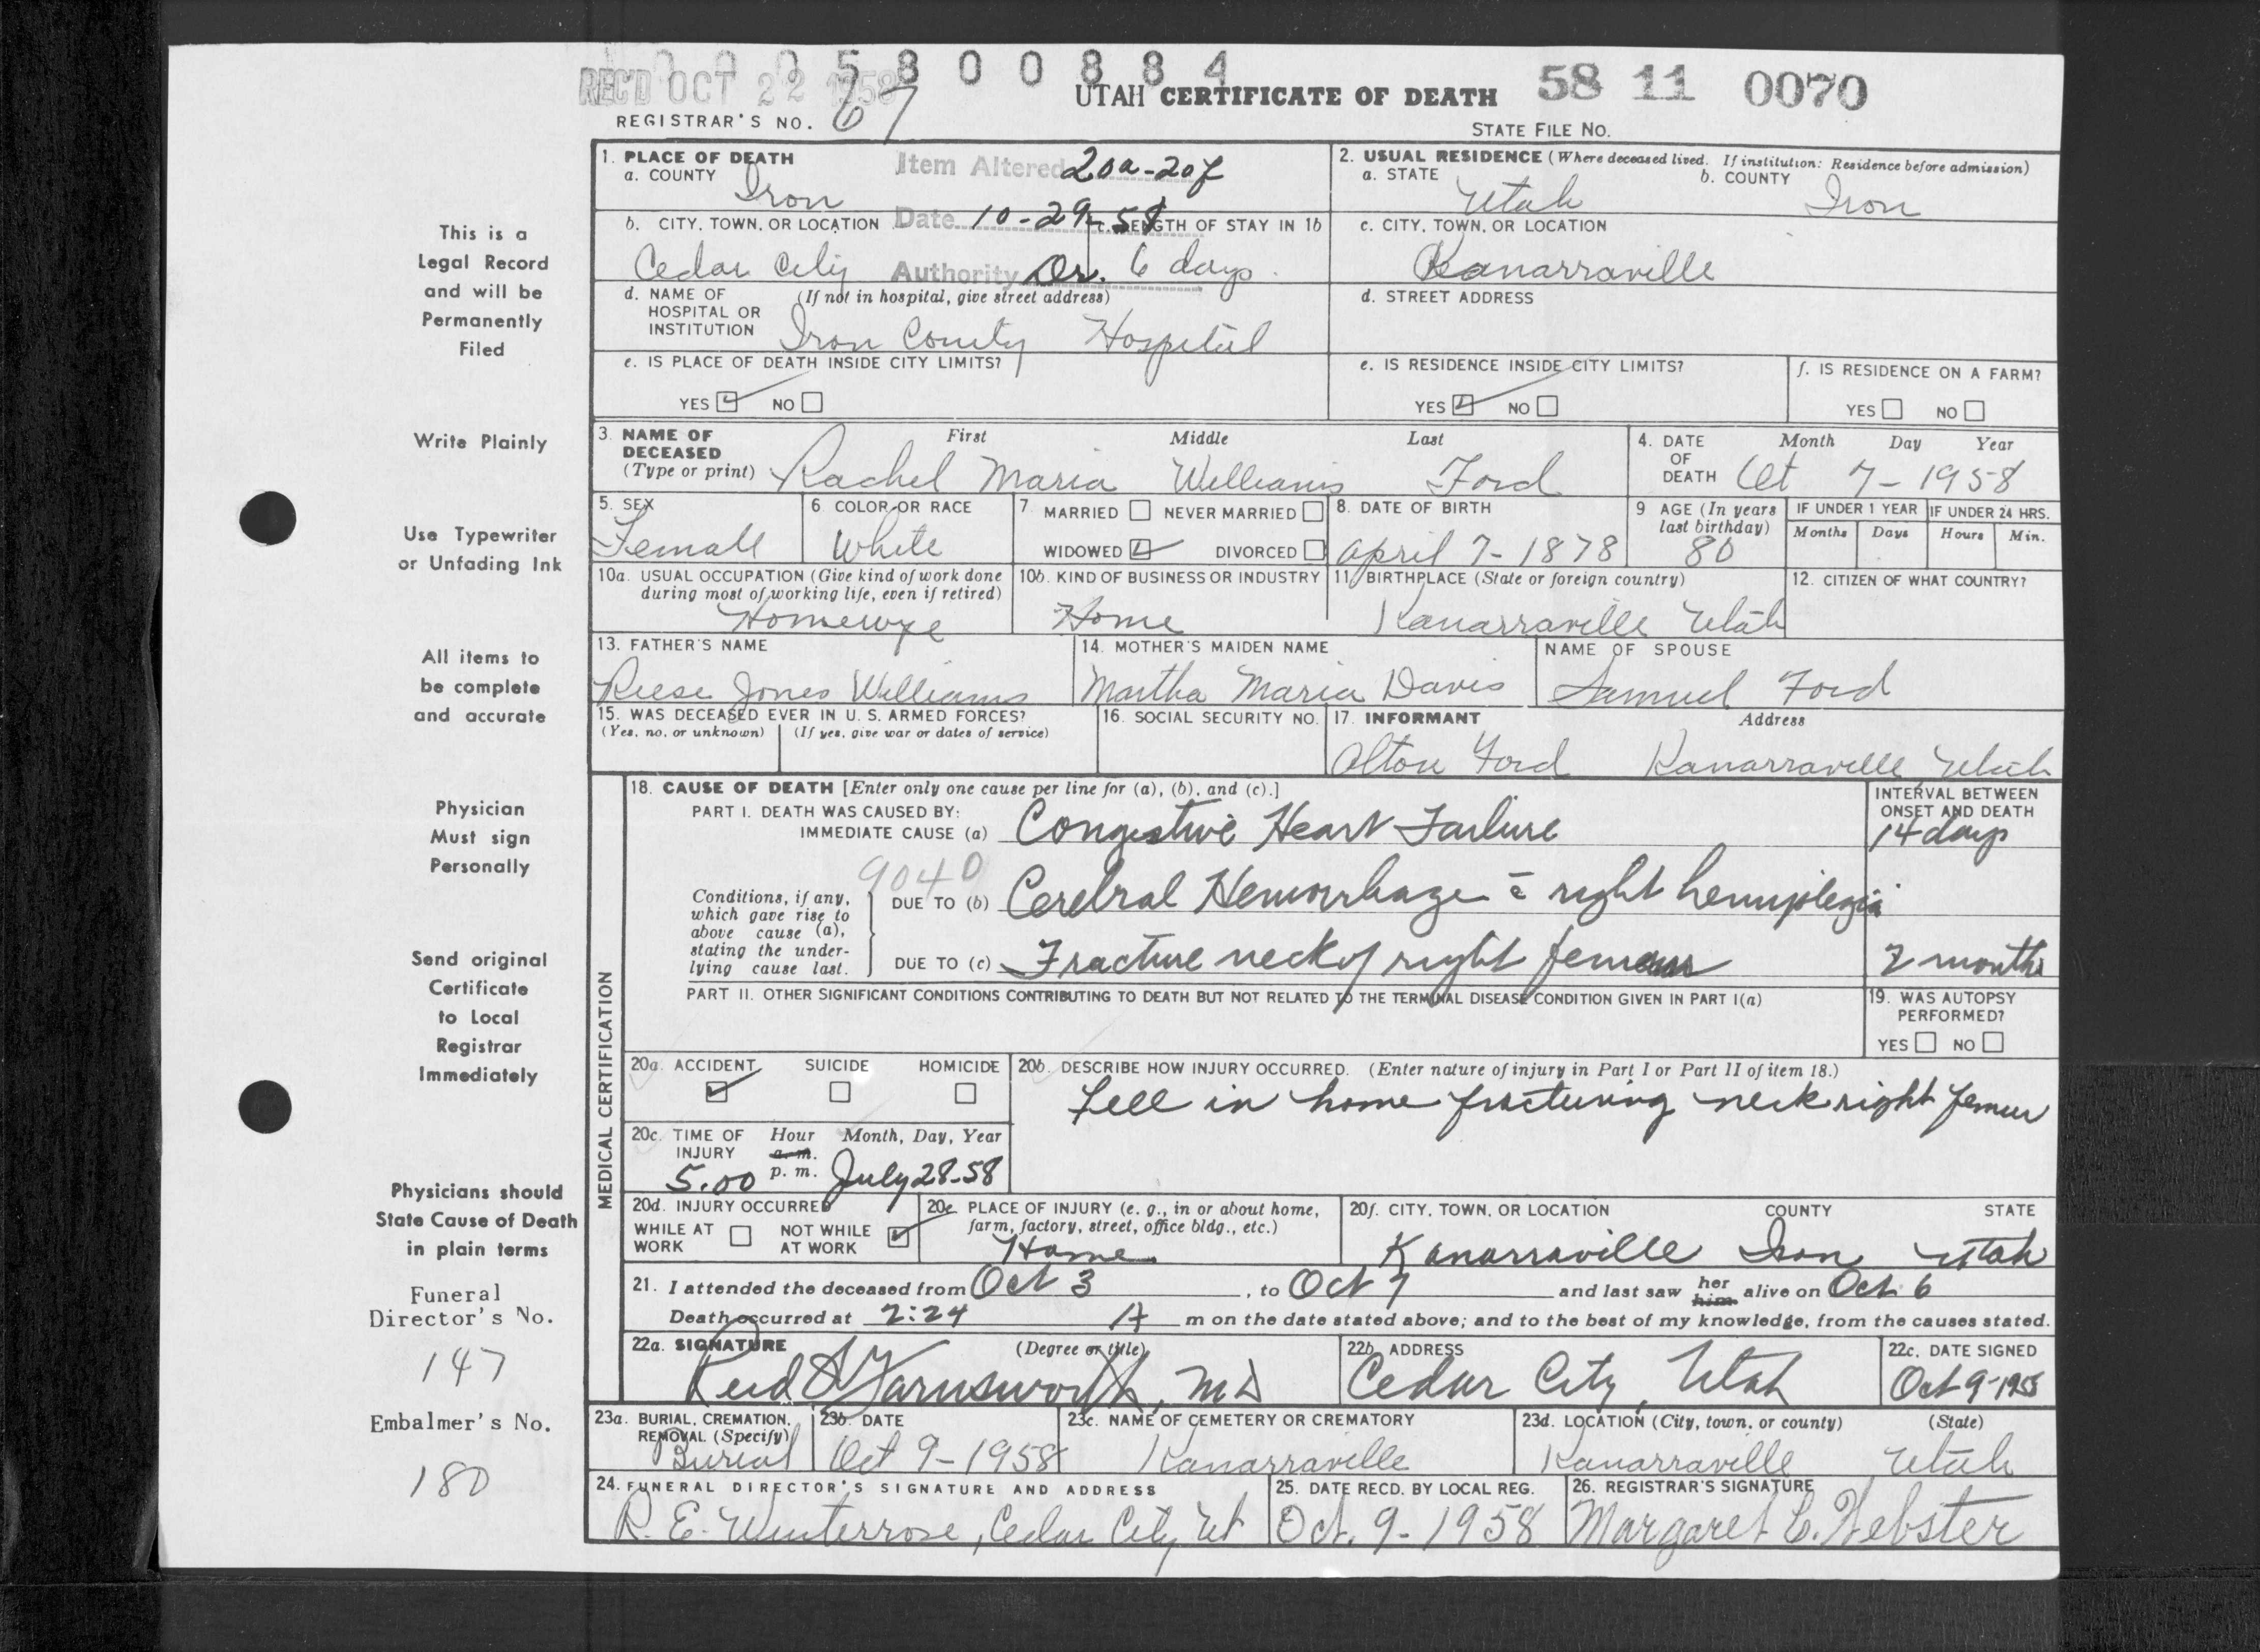 1 0 0 5 8 0 0 8 8 4
REC'D OCT 22 1958
UTAH CERTIFICATE OF DEATH 58 11 0070
REGISTRAR'S NO. 67
STATE FILE NO.
This is a
Legal Record
and will be
Permanently
Filed
Write Plainly
Use Typewriter
or Unfading Ink
All items to
be complete
and accurate
Physician
Must sign
Personally
Send original
Certificate
to Local
Registrar
Immediately
Physicians should
State Cause of Death
in plain terms
Funeral
Director's No.
147
Embalmer's No.
180
1. PLACE OF DEATH
a. COUNTY Iron
Item Altered 20a-20f
Date 10-29-58
Authority Dr.
b. CITY, TOWN, OR LOCATION Cedar City
c. LENGTH OF STAY IN 1b 6 days
d. NAME OF HOSPITAL OR INSTITUTION (If not in hospital, give street address) Iron County Hospital
e. IS PLACE OF DEATH INSIDE CITY LIMITS?
YES NO
2. USUAL RESIDENCE (Where deceased lived. If institution: Residence before admission)
a. STATE Utah b. COUNTY Iron
c. CITY, TOWN, OR LOCATION Kanarraville
d. STREET ADDRESS
e. IS RESIDENCE INSIDE CITY LIMITS?
YES NO
f. IS RESIDENCE ON A FARM?
YES NO
3. NAME OF DECEASED (Type or print) First Middle Last
Rachel Maria Williams Ford
4. DATE OF DEATH Month Day Year
Oct 7-1958
5. SEX Female
6. COLOR OR RACE White
7. MARRIED NEVER MARRIED
WIDOWED DIVORCED
8. DATE OF BIRTH April 7-1878
9 AGE (In years last birthday) 80
IF UNDER 1 YEAR Months Days
IF UNDER 24 HRS. Hours Min.
10a. USUAL OCCUPATION (Give kind of work done during most of working life, even if retired) Homewife
10b. KIND OF BUSINESS OR INDUSTRY Home
11. BIRTHPLACE (State or foreign country) Kanarraville Utah
12. CITIZEN OF WHAT COUNTRY?
13. FATHER'S NAME Reese Jones Williams
14. MOTHER'S MAIDEN NAME Martha Maria Davis
NAME OF SPOUSE Samuel Ford
15. WAS DECEASED EVER IN U. S. ARMED FORCES?
(Yes, no, or unknown) (If yes, give war or dates of service)
16. SOCIAL SECURITY NO.
17. INFORMANT Address
Alton Ford Kanarraville Utah
MEDICAL CERTIFICATION
18. CAUSE OF DEATH [Enter only one cause per line for (a), (b), and (c).]
PART I. DEATH WAS CAUSED BY:
IMMEDIATE CAUSE (a) Congestive Heart Failure
INTERVAL BETWEEN ONSET AND DEATH
14 days
9040
Conditions, if any, which gave rise to above cause (a), stating the underlying cause last.
DUE TO (b) Cerebral Hemorrhage c̄ right hemiplegia
DUE TO (c) Fracture neck of right femur
2 months
PART II. OTHER SIGNIFICANT CONDITIONS CONTRIBUTING TO DEATH BUT NOT RELATED TO THE TERMINAL DISEASE CONDITION GIVEN IN PART I(a)
19. WAS AUTOPSY PERFORMED?
YES NO
20a. ACCIDENT SUICIDE HOMICIDE
20b. DESCRIBE HOW INJURY OCCURRED. (Enter nature of injury in Part I or Part II of item 18.)
Fell in home fracturing neck right femur
20c. TIME OF INJURY Hour a. m. p. m. Month, Day, Year
5.00 July 28-58
20d. INJURY OCCURRED
WHILE AT WORK NOT WHILE AT WORK
20e. PLACE OF INJURY (e. g., in or about home, farm, factory, street, office bldg., etc.)
Home
20f. CITY, TOWN, OR LOCATION COUNTY STATE
Kanarraville Iron Utah
21. I attended the deceased from Oct 3, to Oct 7 and last saw her him alive on Oct 6
Death occurred at 2:24 A m on the date stated above; and to the best of my knowledge, from the causes stated.
22a. SIGNATURE (Degree or title)
Reid Farnsworth, MD
22b. ADDRESS Cedar City, Utah
22c. DATE SIGNED Oct 9-1958
23a. BURIAL, CREMATION, REMOVAL (Specify) Burial
23b. DATE Oct 9-1958
23c. NAME OF CEMETERY OR CREMATORY Kanarraville
23d. LOCATION (City, town, or county) (State)
Kanarraville Utah
24. FUNERAL DIRECTOR'S SIGNATURE AND ADDRESS
R. E. Winterrose, Cedar City, Ut
25. DATE RECD. BY LOCAL REG. Oct. 9-1958
26. REGISTRAR'S SIGNATURE
Margaret L. Webster